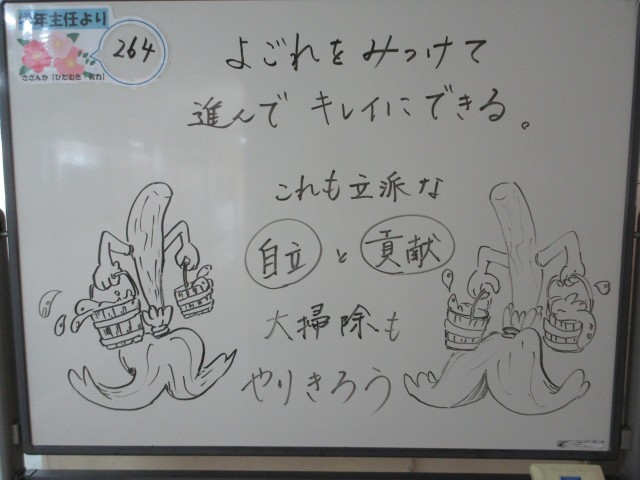 学年主任より
264
さざんか「ひたむき 努力」
よごれをみつけて
進んで キレイにできる。
これも立派な
自立と貢献
大掃除も
やりきろう